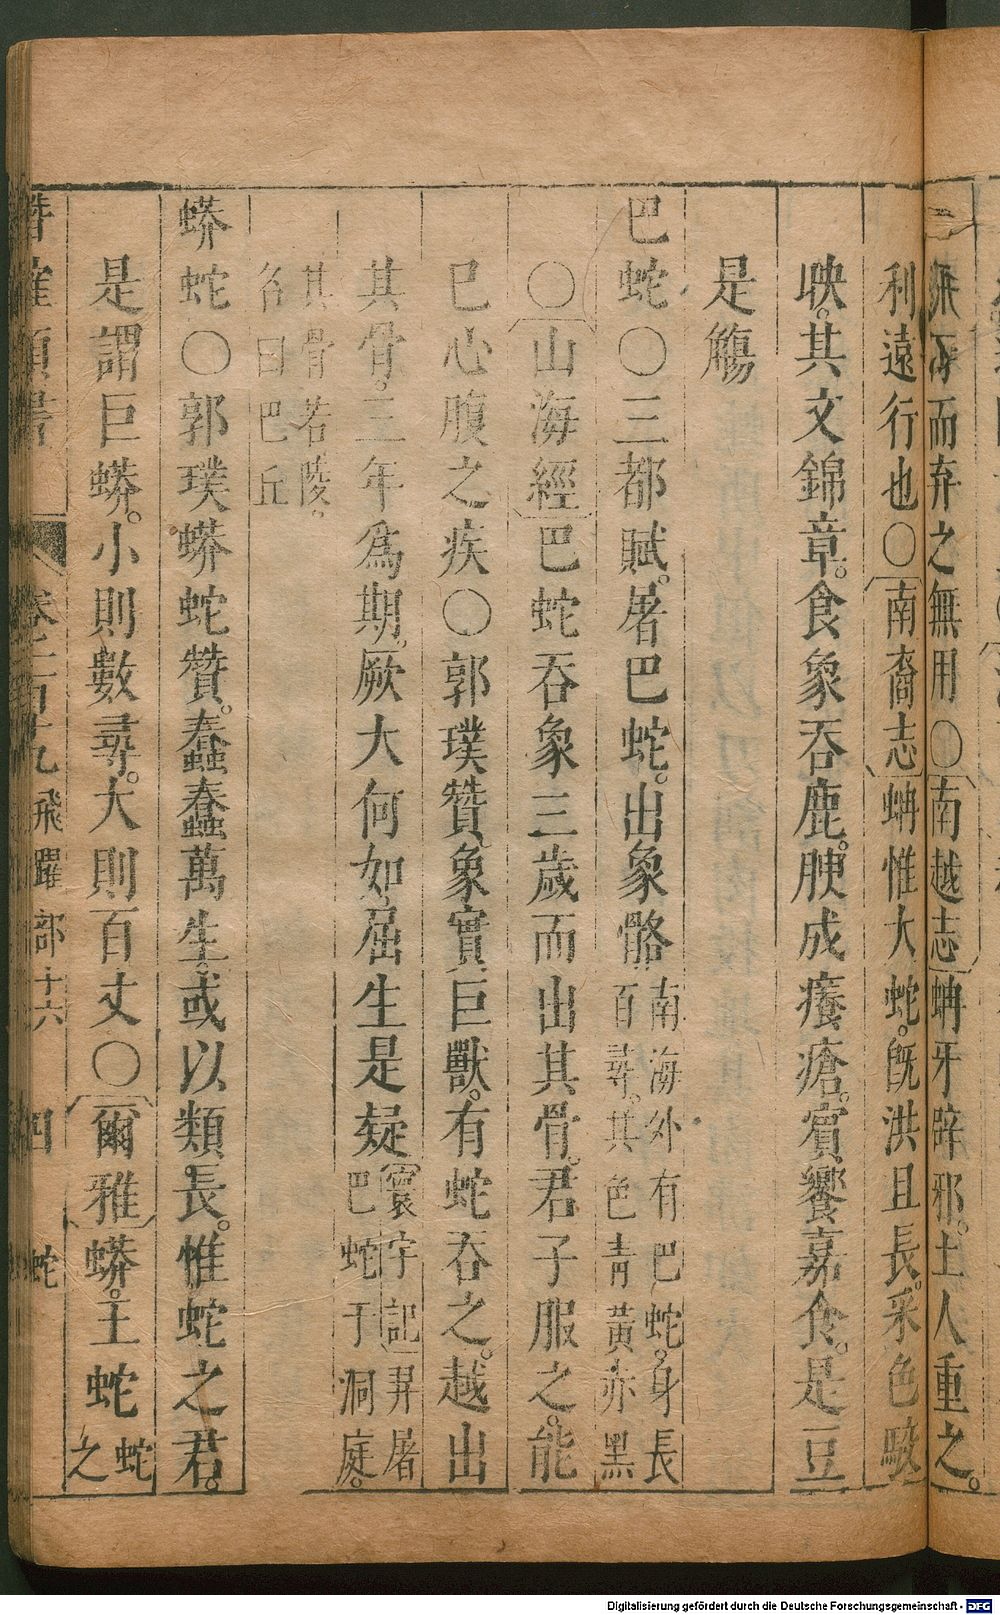 𣎴而弃之無用〇南越志蚺牙辟邪土人重之。
利遠行也〇南裔志蚺惟大蛇。旣洪且長。采色駮
映。其文錦章。食象吞鹿。腴成癢瘡。賓饗嘉食。是豆
是觴
巴蛇〇三都賦。屠巴蛇。出象骼南海外有巴蛇。身長百尋。其色青黃赤黑
〇山海經巴蛇吞象三歲而出其骨。君子服之。能
已心腹之疾〇郭璞贊象實巨獸。有蛇吞之。越出
其骨。三年為期。厥大何如。屈生是疑寰宇記羿屠巴蛇于洞庭。
其骨若陵。名曰巴丘
蟒蛇〇郭璞蟒蛇贊。蠢蠢萬生。或以類長。惟蛇之君。
是謂巨蟒。小則數尋。大則百丈〇爾雅蟒。王蛇蛇之
潛確類書 卷一百十九 飛躍部十六 四 蛇
Digitalisierung gefördert durch die Deutsche Forschungsgemeinschaft - DFG